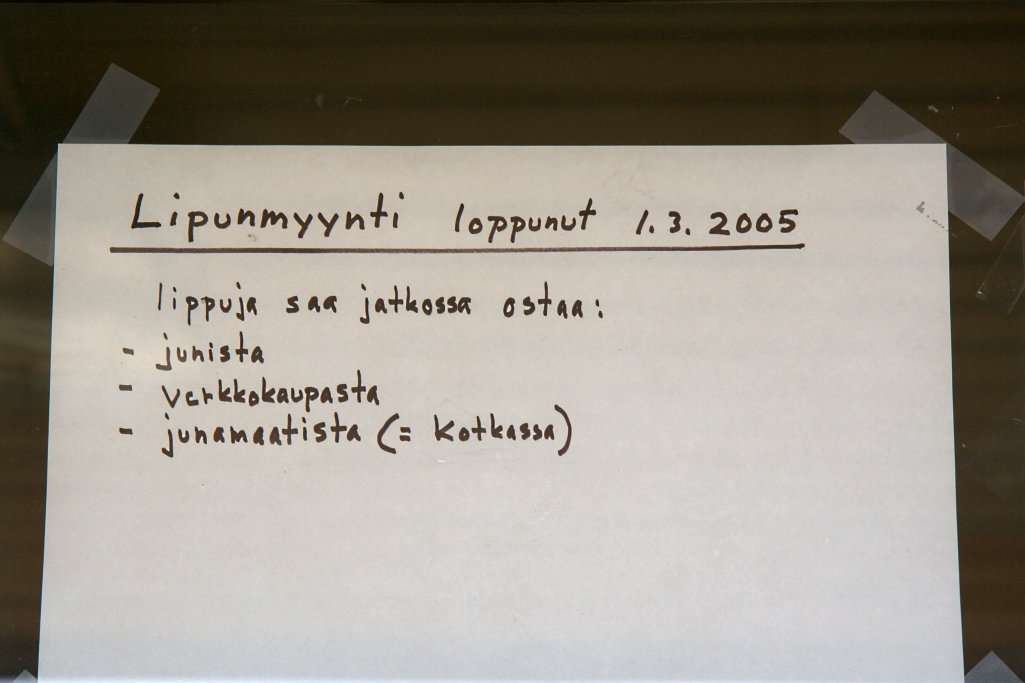 Lipunmyynti loppunut 1.3. 2005
lippuja saa jatkossa ostaa:
- junista
- verkkokaupasta
- junamaatista (= Kotkassa)